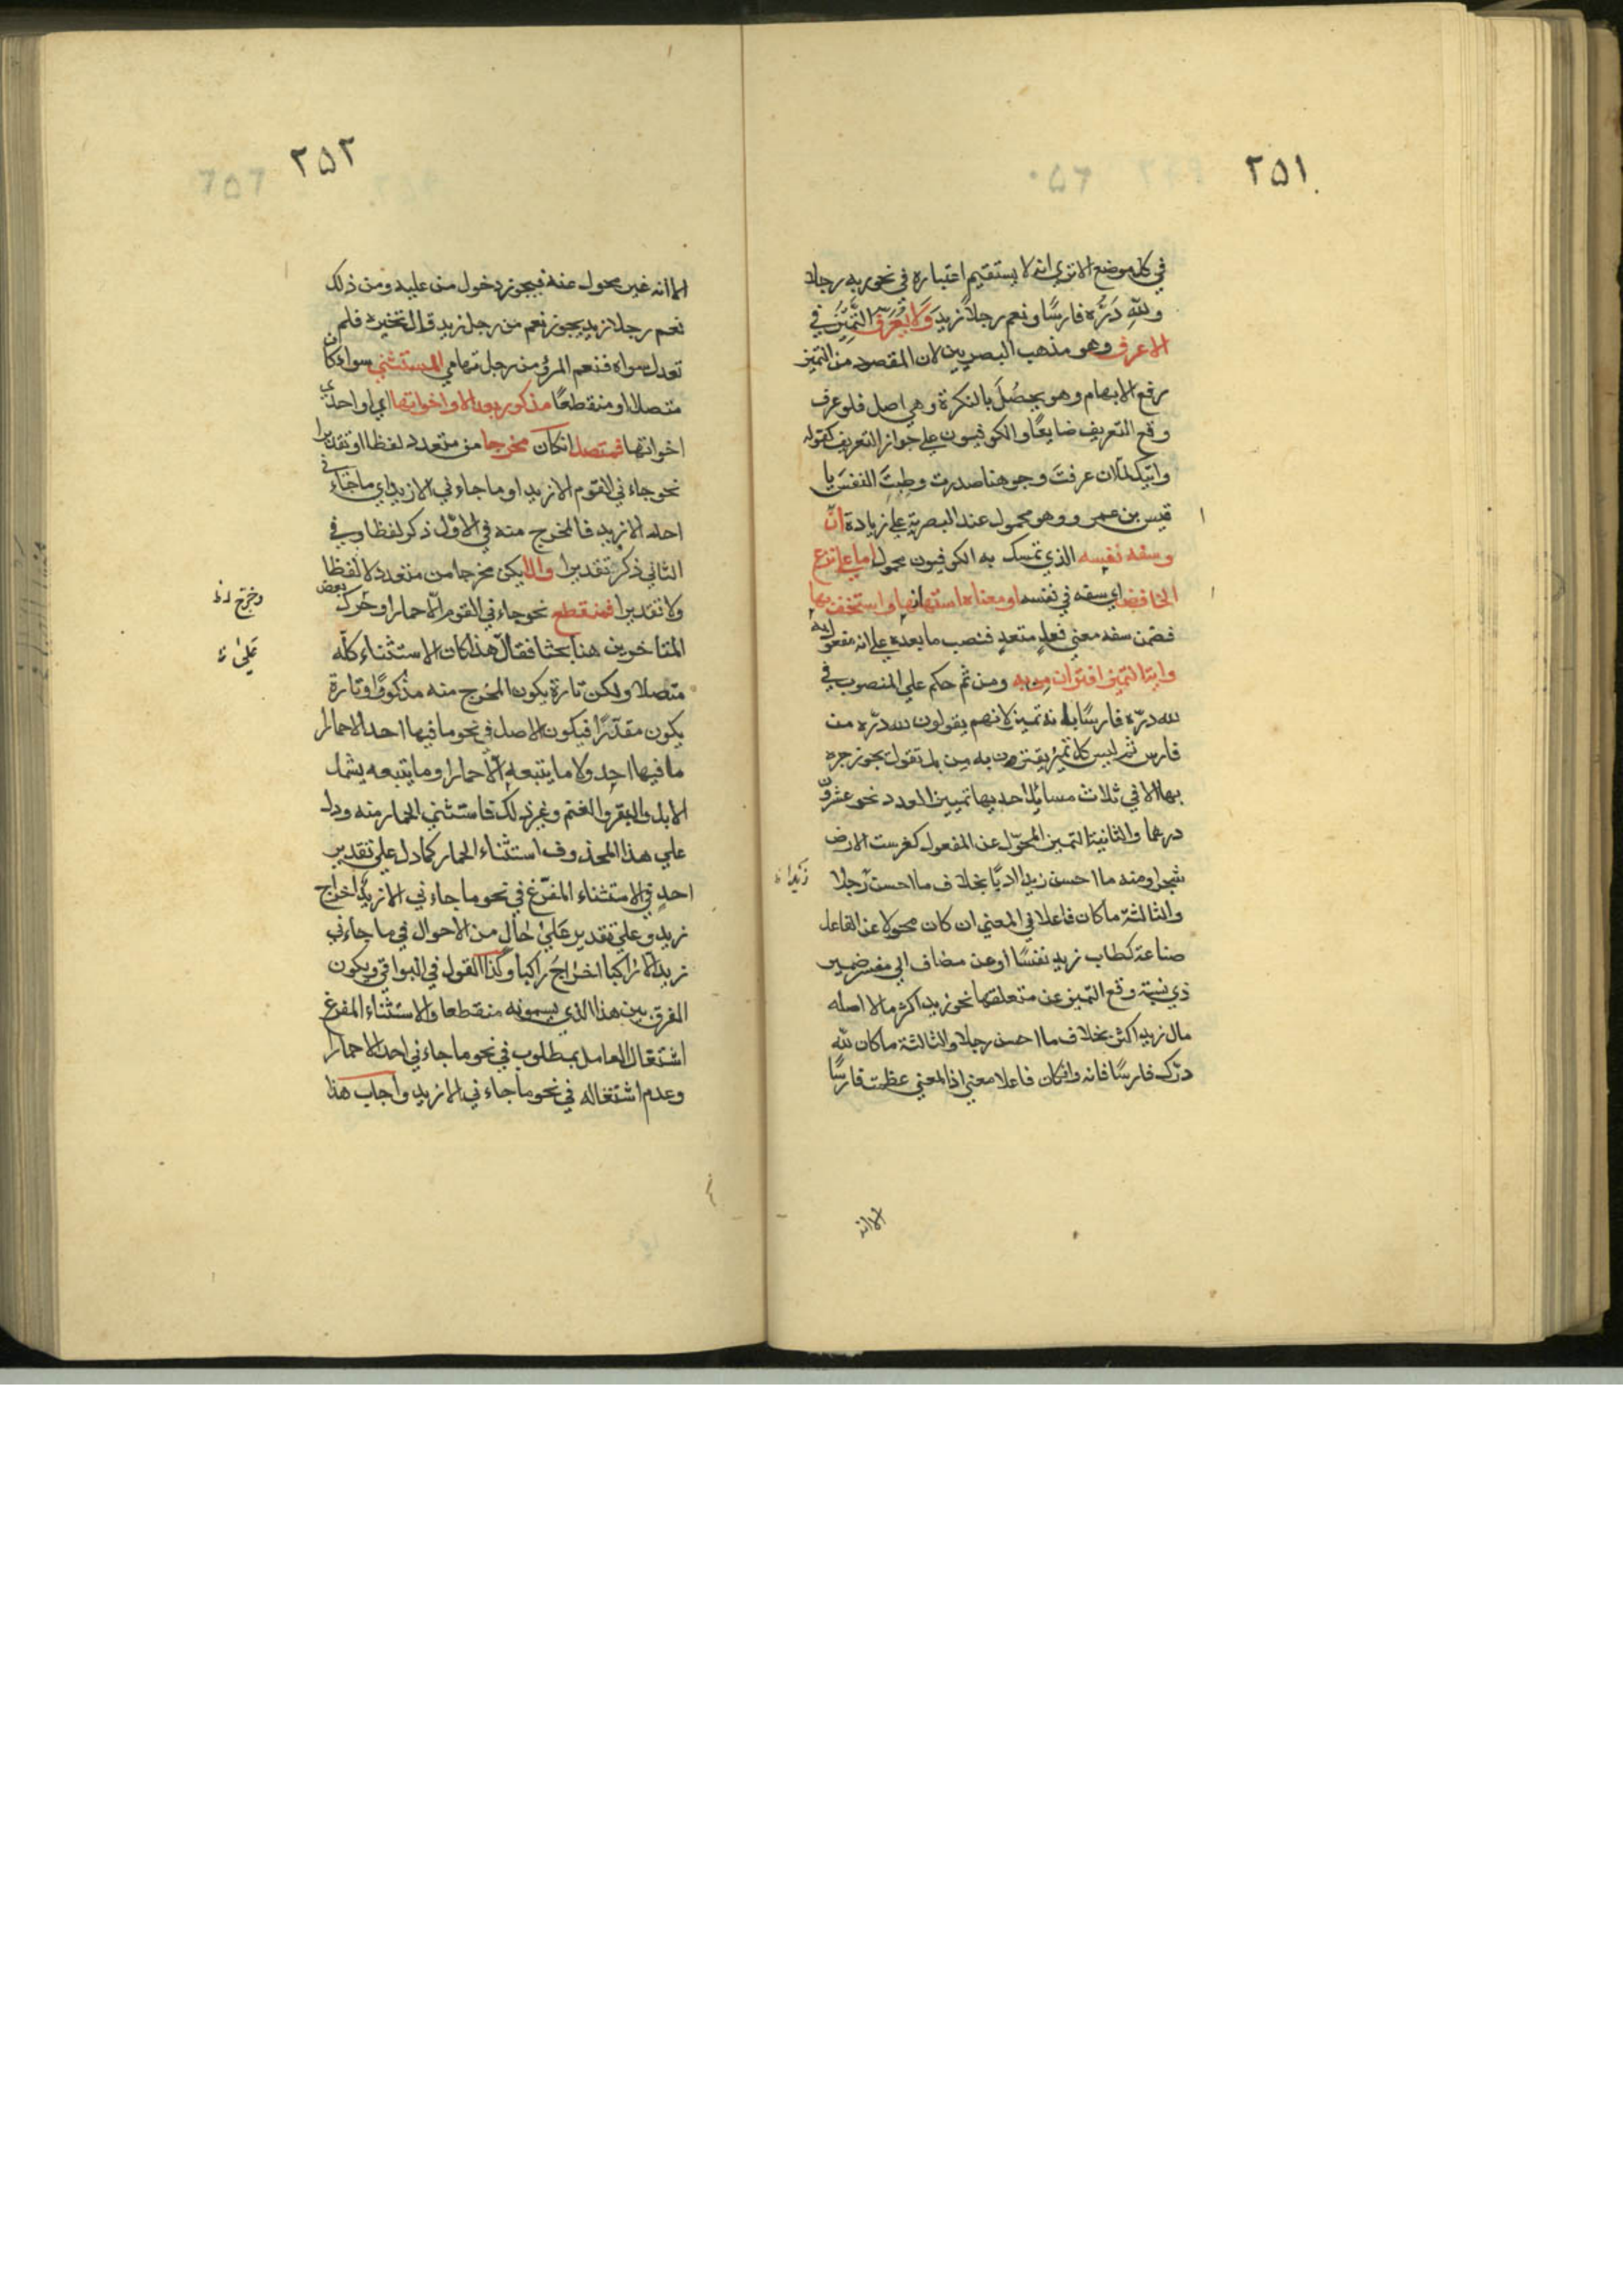 ٢٥١
في كل موضع الا ترى انه لا يستقيم اعتباره في نحو ربه رجلا
ولله دَرُّه فارسًا ونعم رجلاً زيد وَلَا يُعَرَّف التَّمِيزُ في
الاعرف وهو مذهب البصريين لان المقصود من التميز
رفع الابهام وهو يحصُل بالنكرة وهي اصل فلو عرف
وقع التعريف ضايعًا والكوفيون علي جواز التعريف كقوله
رايتك لمّا ان عرفتَ وجوهنا صدرت وطِبتَ النفسَ يا
قيس بن عمرو وهو محمول عند البصرية علي زيادة ال
وسفه نفسه الذي تمسك به الكوفيون محمول اما علي نزع
الخافض اي سفه في نفسه او معناه امتهانها واستخف بها
فضمن سفه معني فعل متعدٍ فنصب ما بعده علي انه مفعول به
واية التميز اقتران من به ومن ثم حكم علي المنصوب في
لله درّه فارسًا بانه تميز لانهم يقولون لله درّه من
فارس ثم ليس كل تميز يقترن به مِن بل تقول يجوز جره
بها الا في ثلاث مسايل احديها تمييز العدد نحو عشرون
درهما والثانية التميز المحوّل عن المفعول كغرست الارض
شجرا ومنه ما احسن زيدا ادبًا بخلاف ما احسن رجلا
زيدا ظ
والثالثة ما كان فاعلا في المعني ان كان محولا عن الفاعل
صناعة كطاب زيد نفسًا او عن مضاف الي مفسر ضمير
ذي نسبة وقع التميز عن متعلقها نحو زيد اكثر مالا اصله
مال زيد اكثر بخلاف ما احسن رجلا والثالثة ما كان لله
درّك فارسًا فانه وان كان فاعلا معني اذ المعني عظمت فارسًا
الا انه
٢٥٢
الا انه غير محول عنه فيجوز دخول من عليه ومن ذلك
نعم رجلا زيد يجوز نعم من رجل زيد قال تخيره فلم
تعدل سواه فنعم المرؤ من رجل تهامي المستثني سواء كان
متصلا او منقطعًا مذكور بعد الا واخواتها اي او احدي
اخواتها فمتصل ان كان مخرجا من متعدد لفظا او تقديرا
نحو جاءني القوم الا زيدا وما جاءني الا زيد اي ما جاءني
احد الا زيد فالمخرج منه في الاوّل ذكر لفظا وفي
الثاني ذكر تقديرا والا يكن مخرجا من متعدد لا لفظا
ولا تقديرا فمنقطع نحو جاءني القوم الّا حمارا وحرك بعض
وخرج له ظ
المتاخرين هنا بحثا فقال هذا كان الاستثناء كلّه
علي ظ
متصلا ولكن تارة يكون المخرج منه مذكورًا وتارة
يكون مقدّرًا فيكون الاصل في نحو ما فيها احد الا حمارا
ما فيها احد ولا ما يتبعه الّا حمارا وما يتبعه يشمل
الابل والبقر والغنم وغير ذلك فاستثني الحمار منه ودل
علي هذا المحذوف استثناء الحمار كما دل علي تقدير
احد في الاستثناء المفرّغ في نحو ما جاءني الا زيد اخراج
زيد وعلي تقدير علي حال من الاحوال في ما جاءني
زيد الا راكبا اخراج راكبا وكذا القول في البواقي ويكون
الفرق بين هذا الذي يسمونه منقطعا والاستثناء المفرغ
اشتغال العامل بمطلوب في نحو ما جاءني احد الا حمارا
وعدم اشتغاله في نحو ما جاءني الا زيد واجاب هذا